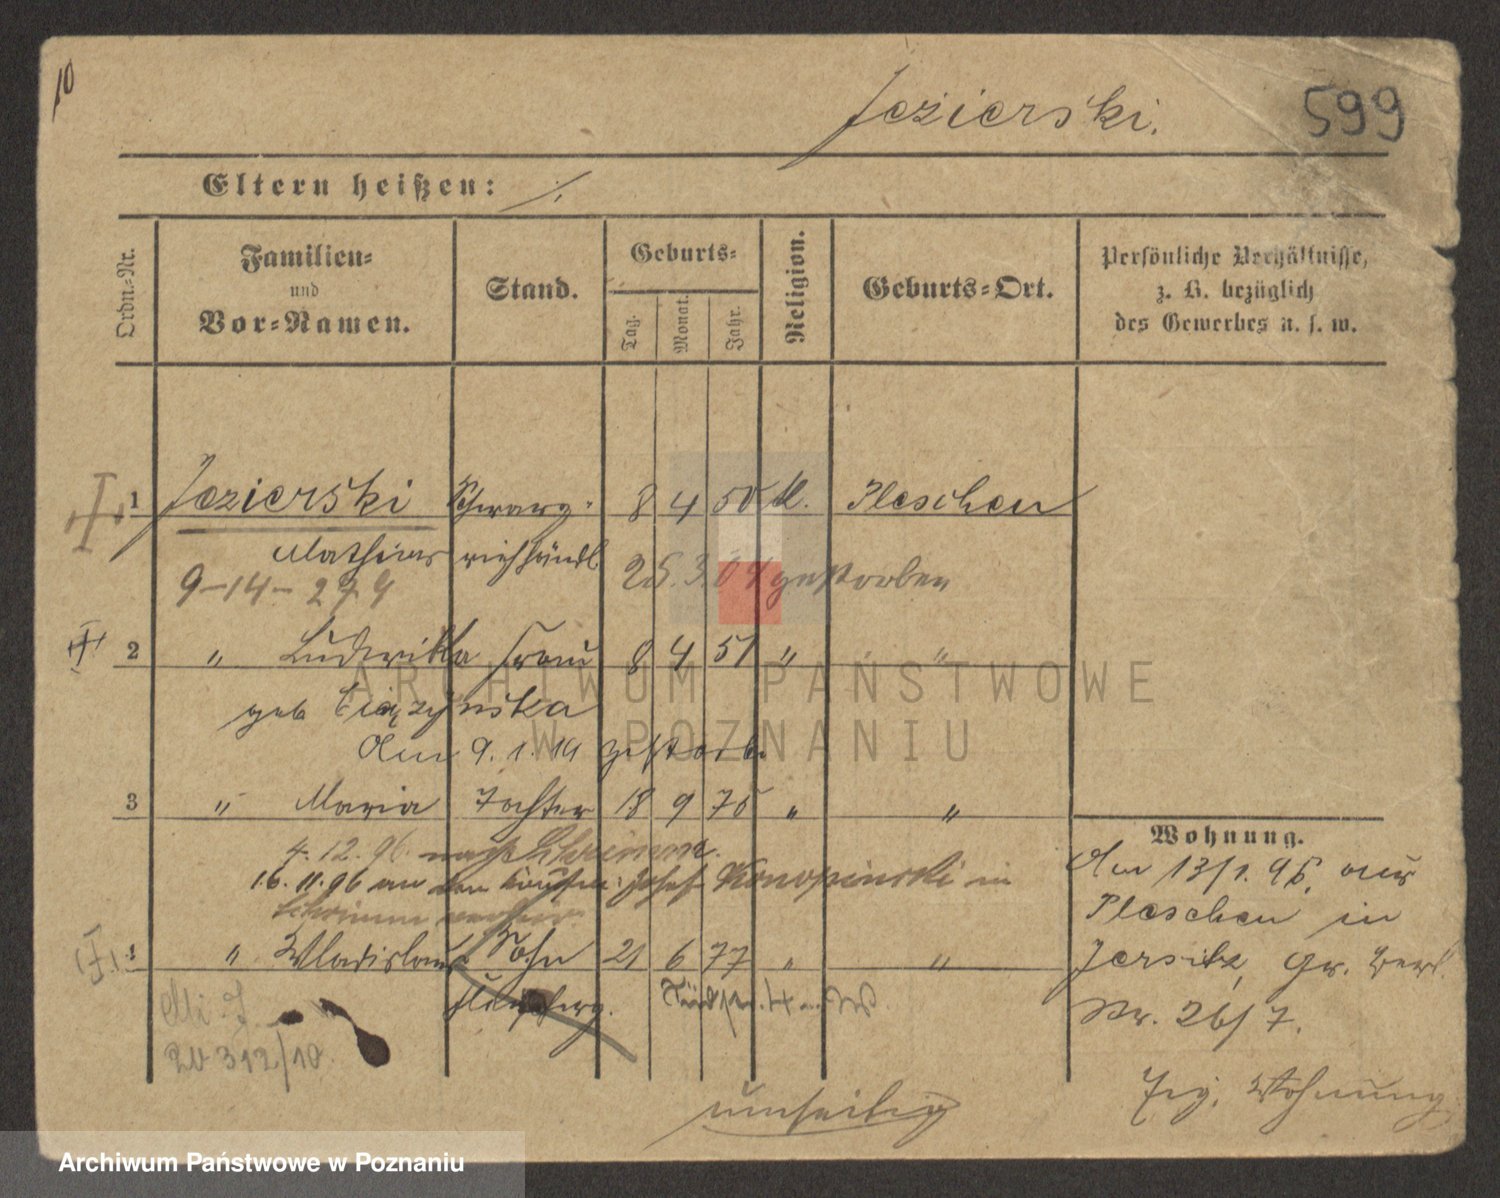 10
Jezierski.
599
Eltern heißen: ./.
Ordn.-Nr.
Familien-
und
Vor-Namen.
Stand.
Geburts-
Tag.
Monat.
Jahr.
Religion.
Geburts-Ort.
Persönliche Verhältnisse,
z. B. bezüglich
des Gewerbes u. s. w.
1 Jezierski Schwarz- 8 4 50 k. Pleschen
Mathias viehhändl
9-14-279 25.3.09 gestorben
2 " Ludwika Frau 8 4 51 " "
geb
Am 9.1.19 gestorb.
3 " Maria Tochter 18 9 75 " "
4.12.96 nach Schrimm.
16.11.96 an den Josef Konopinski in
Schrimm
4 " Wladislaus Sohn 21 6 77 " "
312/10.
Wohnung.
Am 13/1.96, aus
Pleschen in
Jersitz, Gr. Berl.
Nr. 26/7.
Wohnung
umseitig
ARCHIWUM PAŃSTWOWE
W POZNANIU
Archiwum Państwowe w Poznaniu